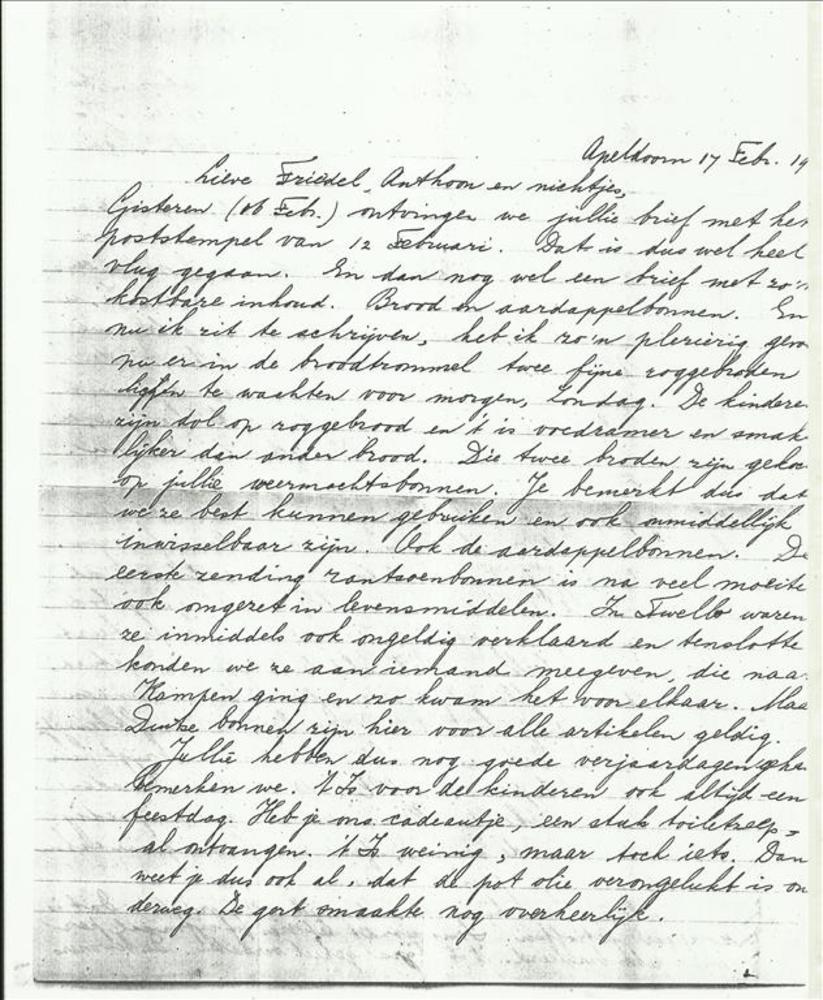 Apeldoorn 17 Febr. 19
Lieve Friedel, Anthoon en nichtjes,
Gisteren (16 Febr.) ontvingen we jullie brief met het
poststempel van 12 Februari. Dat is dus wel heel
vlug gegaan. En dan nog wel een brief met zo'n
kostbare inhoud. Brood en aardappelbonnen. En
nu ik zit te schrijven, heb ik zo'n plezierig gevo
nu er in de broodtrommel twee fijne roggebroden
liggen te wachten voor morgen, Zondag. De kindere
zijn dol op roggebrood en 't is voedzamer en smak
lijker dan ander brood. Die twee broden zijn gekoc
op jullie weermachtsbonnen. Je bemerkt dus dat
we ze best kunnen gebruiken en ook onmiddellijk
inwisselbaar zijn. Ook de aardappelbonnen. De
eerste zending rantsoenbonnen is na veel moeite
ook omgezet in levensmiddelen. In Twello waren
ze inmiddels ook ongeldig verklaard en tenslotte
konden we ze aan iemand meegeven, die naa
Kampen ging en zo kwam het voor elkaar. Maa
Duitse bonnen zijn hier voor alle artikelen geldig.
Jullie hebben dus nog goede verjaardagen geha
bemerken we. 't Is voor de kinderen ook altijd een
feestdag. Heb je ons cadeautje, een stuk toiletzeep,
al ontvangen. 't Is weinig, maar toch iets. Dan
weet je dus ook al, dat de pot olie verongelukt is on
derweg. De gort smaakte nog overheerlijk.